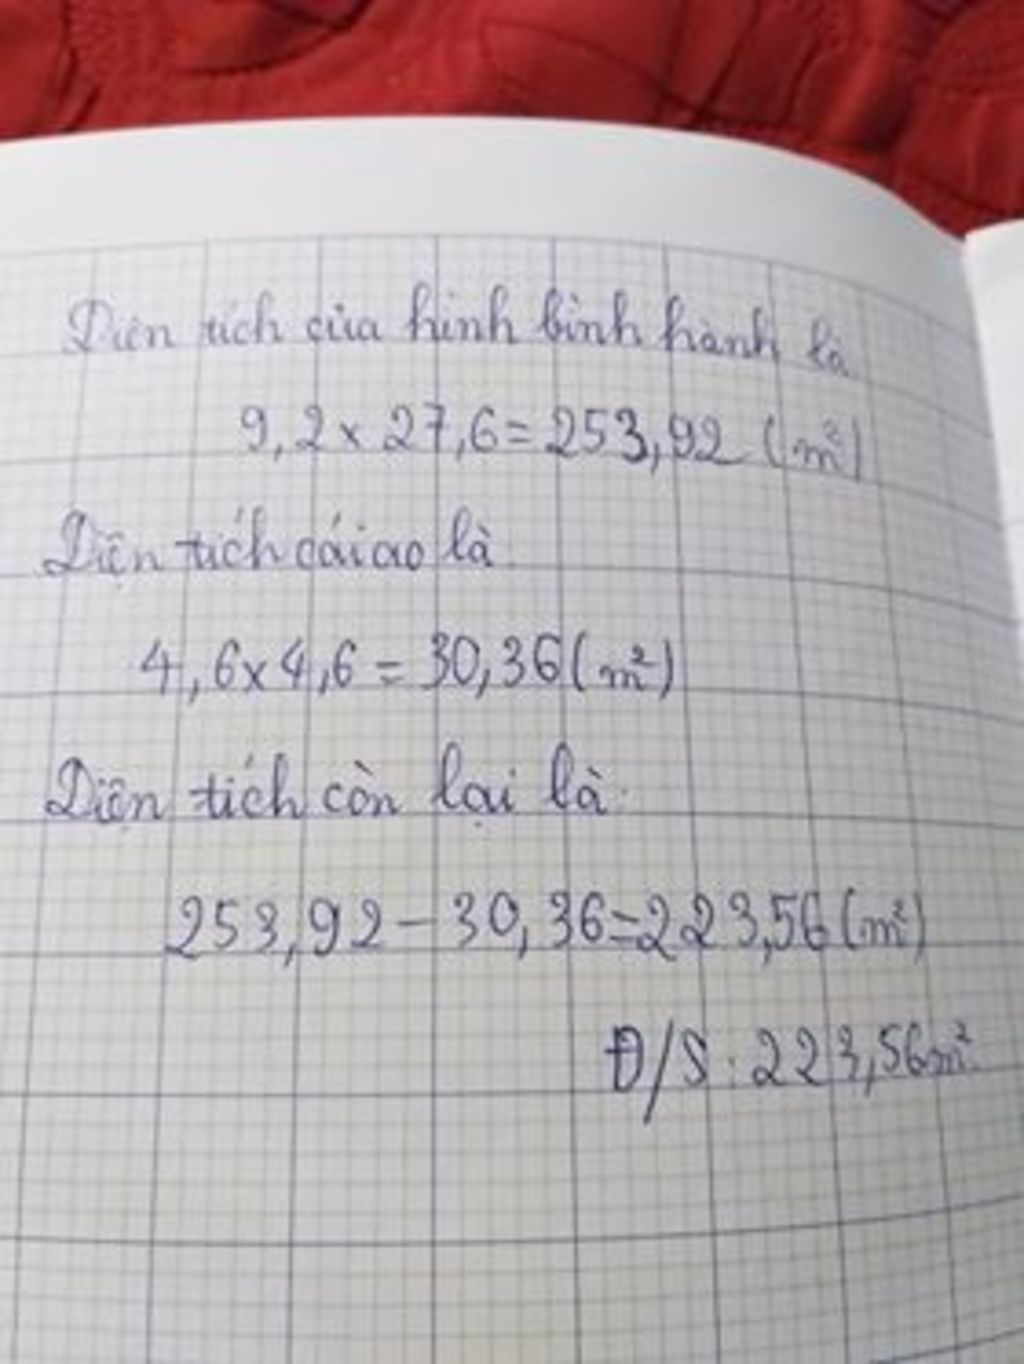 Diện tích của hình bình hành là
9,2 x 27,6 = 253,92 (m²)
Diện tích cái ao là
4,6 x 4,6 = 30,36 (m²)
Diện tích còn lại là:
253,92 - 30,36 = 223,56 (m²)
Đ/S: 223,56m²